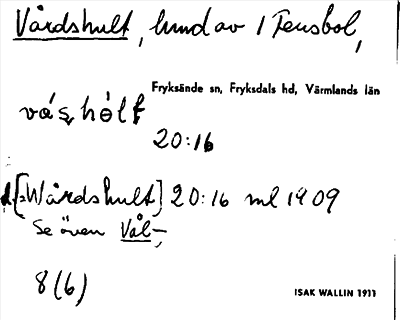 Vårdshult, hund av 1 Fensbol,
Fryksände sn, Fryksdals hd, Värmlands län
20:16
[Wårdshult] 20:16 ml 1909
Se även Vål-,
8(6)
ISAK WALLIN 1911